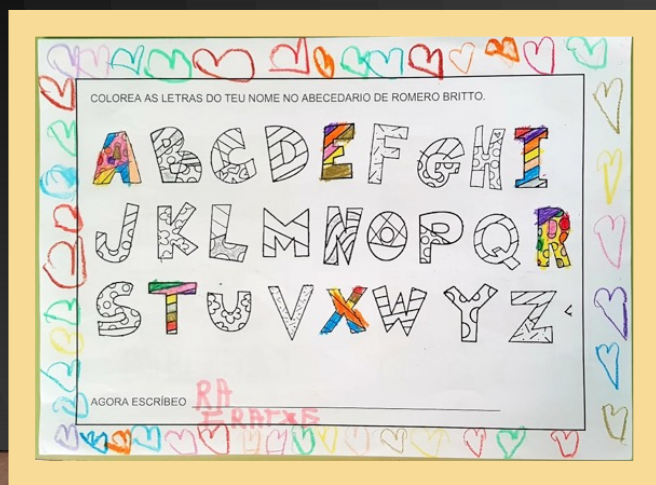 COLOREA AS LETRAS DO TEU NOME NO ABECEDARIO DE ROMERO BRITTO.
A B C D E F G H I
J K L M N O P Q R
S T U V X W Y Z
AGORA ESCRÍBEO RA
IRATXE